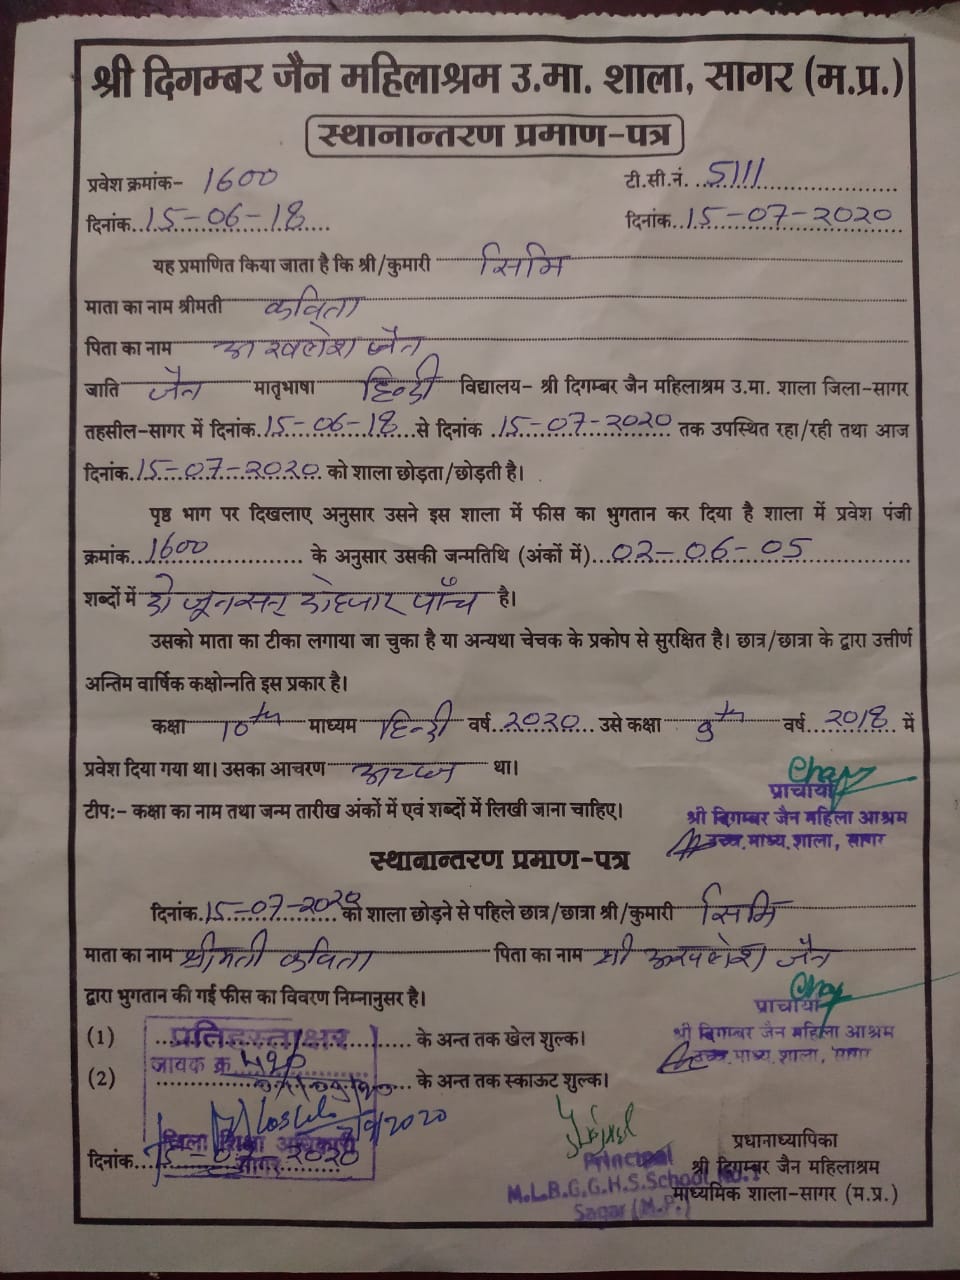 श्री दिगम्बर जैन महिलाश्रम उ.मा. शाला, सागर (म.प्र.)
स्थानान्तरण प्रमाण-पत्र
प्रवेश क्रमांक- 1600 टी.सी.नं. 5111
दिनांक 15-06-18 दिनांक 15-07-2020
यह प्रमाणित किया जाता है कि श्री/कुमारी सिमि
माता का नाम श्रीमती कविता
पिता का नाम अखलेश जैन
जाति जैन मातृभाषा हिन्दी विद्यालय- श्री दिगम्बर जैन महिलाश्रम उ.मा. शाला जिला-सागर
तहसील-सागर में दिनांक 15-06-18 से दिनांक 15-07-2020 तक उपस्थित रहा/रही तथा आज
दिनांक 15-07-2020 को शाला छोड़ता/छोड़ती है।
पृष्ठ भाग पर दिखलाए अनुसार उसने इस शाला में फीस का भुगतान कर दिया है शाला में प्रवेश पंजी
क्रमांक 1600 के अनुसार उसकी जन्मतिथि (अंकों में) 02-06-05
शब्दों में दो जून सन् दो हजार पाँच है।
उसको माता का टीका लगाया जा चुका है या अन्यथा चेचक के प्रकोप से सुरक्षित है। छात्र/छात्रा के द्वारा उत्तीर्ण
अन्तिम वार्षिक कक्षोन्नति इस प्रकार है।
कक्षा 10th माध्यम हिन्दी वर्ष 2020 उसे कक्षा 9th वर्ष 2018 में
प्रवेश दिया गया था। उसका आचरण अच्छा था।
प्राचार्या
टीप:- कक्षा का नाम तथा जन्म तारीख अंकों में एवं शब्दों में लिखी जाना चाहिए।
श्री दिगम्बर जैन महिला आश्रम
उच्च. माध्य. शाला, सागर
स्थानान्तरण प्रमाण-पत्र
दिनांक 15-07-2020 को शाला छोड़ने से पहिले छात्र/छात्रा श्री/कुमारी सिमि
माता का नाम श्रीमती कविता पिता का नाम श्री अखलेश जैन
द्वारा भुगतान की गई फीस का विवरण निम्नानुसर है।
प्राचार्या
श्री दिगम्बर जैन महिला आश्रम
उच्च. माध्य. शाला, सागर
(1) के अन्त तक खेल शुल्क।
प्रतिहस्ताक्षर
जावक क्र.
(2) के अन्त तक स्काऊट शुल्क।
जिला शिक्षा अधिकारी
सागर
दिनांक 15-07-2020
Principal
M.L.B.G.G.H.S.School No.1
Sagar (M.P.)
प्रधानाध्यापिका
श्री दिगम्बर जैन महिलाश्रम
माध्यमिक शाला-सागर (म.प्र.)